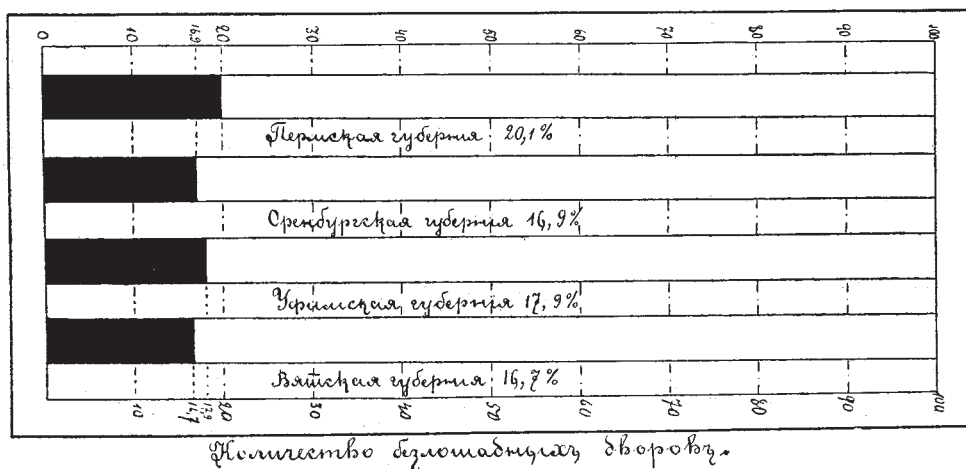 0 10 16,9 20 30 40 50 60 70 80 90 100
Пермская губерния 20,1%
Оренбургская губерния 16,9%
Уфимская губерния 17,9%
Вятская губерния 16,7%
10 16,7 17,9 20 30 40 50 60 70 80 90 100
Количество безлошадныхъ дворовъ.